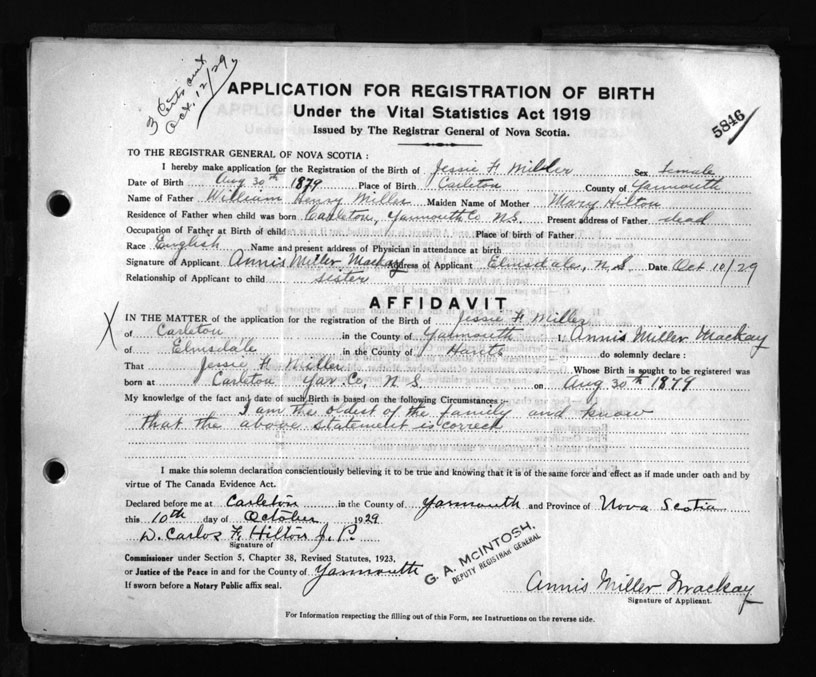 3 Certs out
Oct. 12/29
APPLICATION FOR REGISTRATION OF BIRTH
Under the Vital Statistics Act 1919
Issued by The Registrar General of Nova Scotia.
5846
TO THE REGISTRAR GENERAL OF NOVA SCOTIA :
I hereby make application for the Registration of the Birth of Jessie H Miller Sex female
Date of Birth Aug 30th 1879 Place of Birth Carleton County of Yarmouth
Name of Father William Henry Miller Maiden Name of Mother Mary Hilton
Residence of Father when child was born Carleton, Yarmouth Co N.S. Present address of Father dead
Occupation of Father at Birth of child Place of birth of Father
Race English Name and present address of Physician in attendance at birth
Signature of Applicant Annis Miller Mackay Address of Applicant Elmsdale, N.S. Date Oct 10/29
Relationship of Applicant to child sister
AFFIDAVIT
X IN THE MATTER of the application for the registration of the Birth of Jessie H Miller
of Carleton in the County of Yarmouth I, Annis Miller Mackay
of Elmsdale in the County of Hants do solemnly declare :
That Jessie H Miller Whose Birth is sought to be registered was
born at Carleton Yar. Co, N S. on Aug 30th 1879
My knowledge of the fact and date of such Birth is based on the following Circumstances :-
I am the oldest of the family and know
that the above statement is correct
I make this solemn declaration conscientiously believing it to be true and knowing that it is of the same force and effect as if made under oath and by
virtue of The Canada Evidence Act.
Declared before me at Carleton in the County of Yarmouth and Province of Nova Scotia
this 10th day of October 1929
D. Carlos F. Hilton J. P.
Signature of
Commissioner under Section 5, Chapter 38, Revised Statutes, 1923,
or Justice of the Peace in and for the County of Yarmouth
If sworn before a Notary Public affix seal.
G. A. McINTOSH,
DEPUTY REGISTRAR GENERAL
Annis Miller Mackay
Signature of Applicant.
For Information respecting the filling out of this Form, see Instructions on the reverse side.